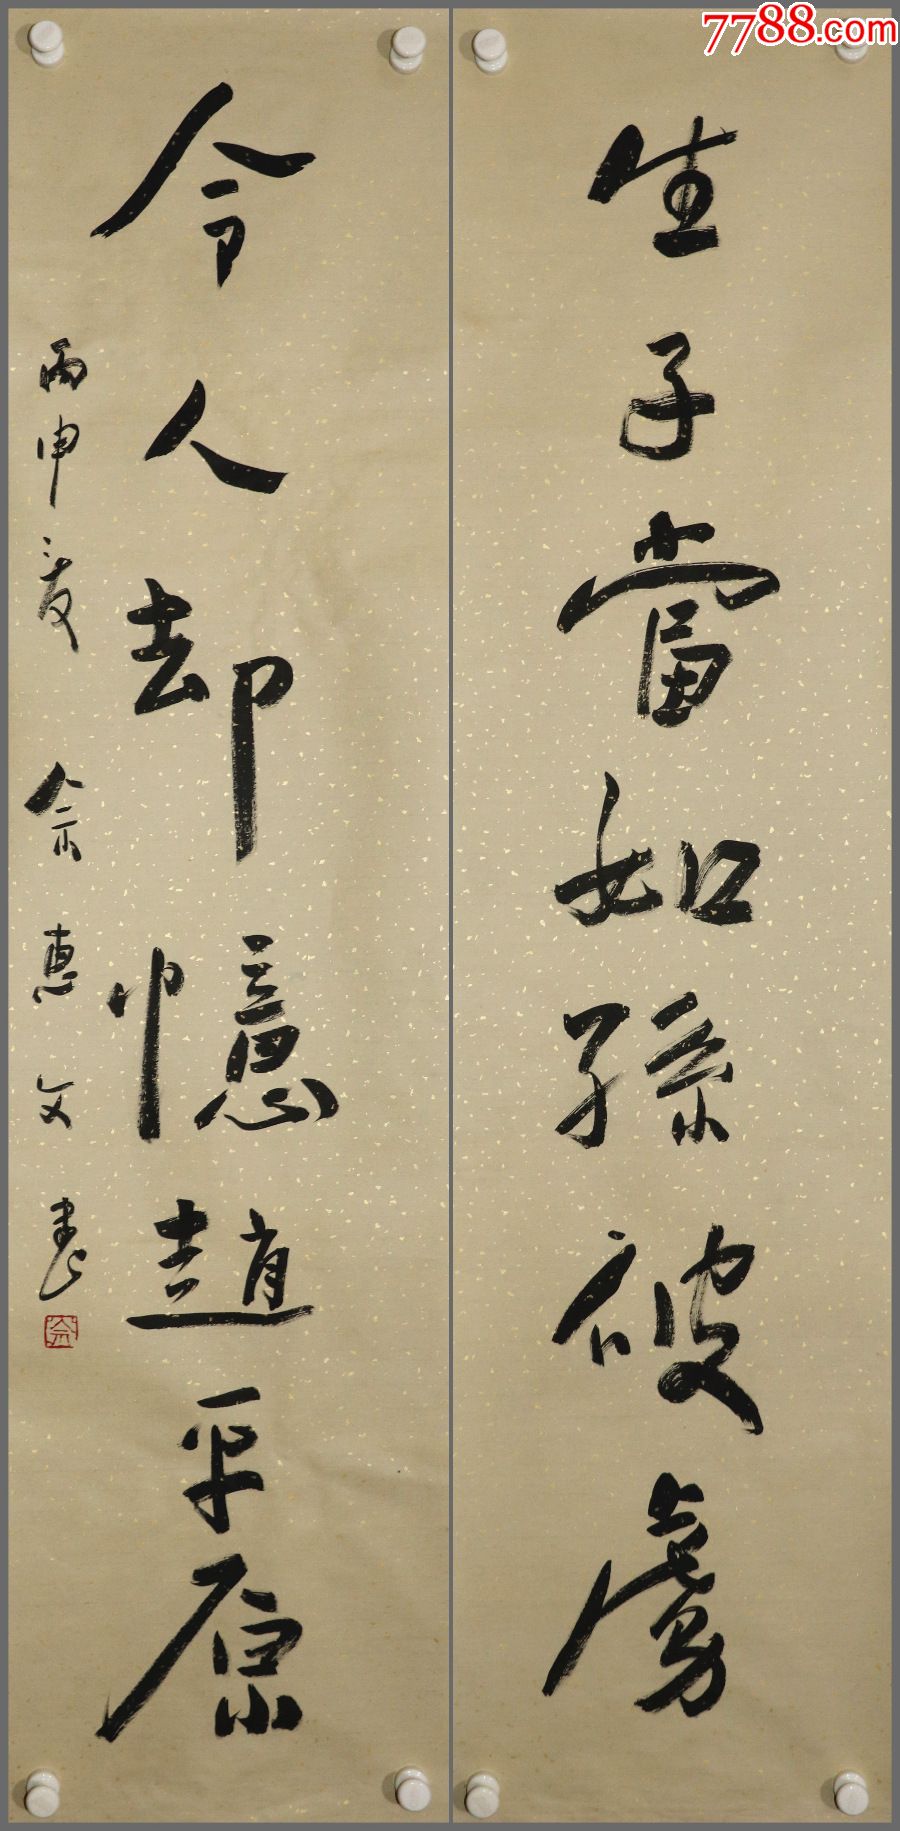 7788.com
生子當如孫破虜
令人却憶趙平原
丙申夏 佘惠文書
佘